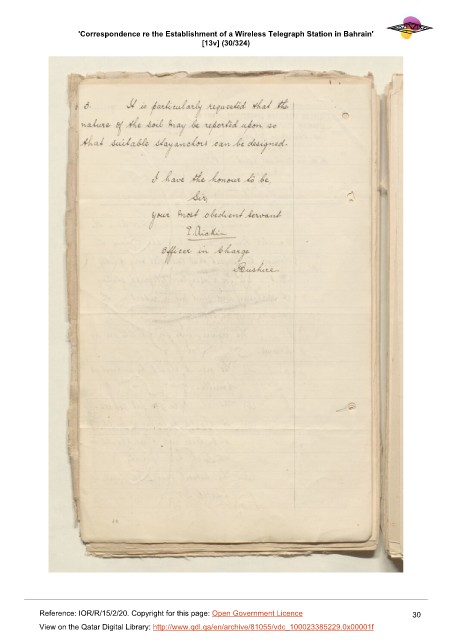 'Correspondence re the Establishment of a Wireless Telegraph Station in Bahrain'
[13v] (30/324)
3. It is particularly requested that the
nature of the soil may be reported upon so
that suitable stay anchors can be designed.
I have the honour to be,
Sir,
your most obedient servant
Officer in Charge
Bushire
Reference: IOR/R/15/2/20. Copyright for this page: Open Government Licence
30
View on the Qatar Digital Library: http://www.qdl.qa/en/archive/81055/vdc_100023385229.0x00001f